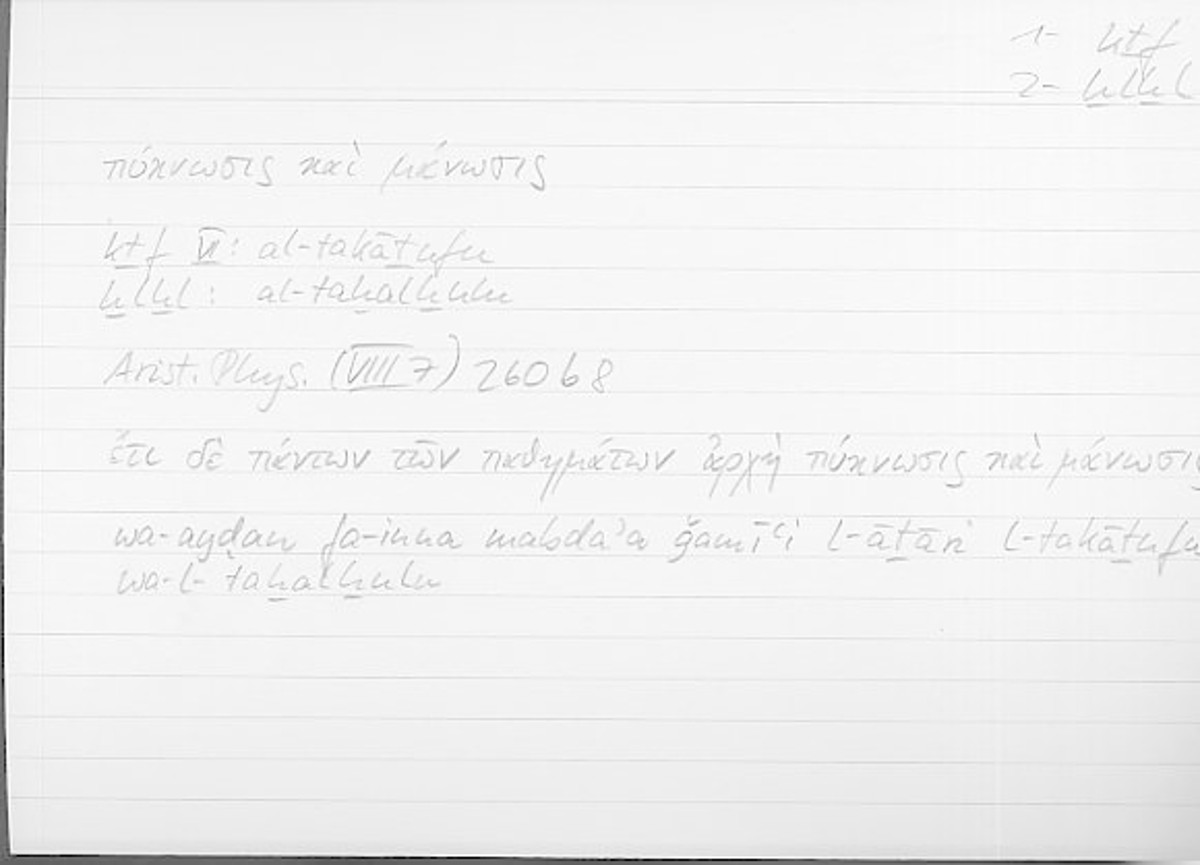 1- kṯf
2- ḫlḫl
πύκνωσις καὶ μάνωσις
kṯf VI: al-takāṯufu
ḫlḫl: al-taḫalḫulu
Arist. Phys. (VIII 7) 260b8
ἔτι δὲ πάντων τῶν παθημάτων ἀρχὴ πύκνωσις καὶ μάνωσις
wa-ayḍan fa-inna mabda'a ǧamīʿi l-āṯāri l-takāṯufu
wa-l-taḫalḫulu